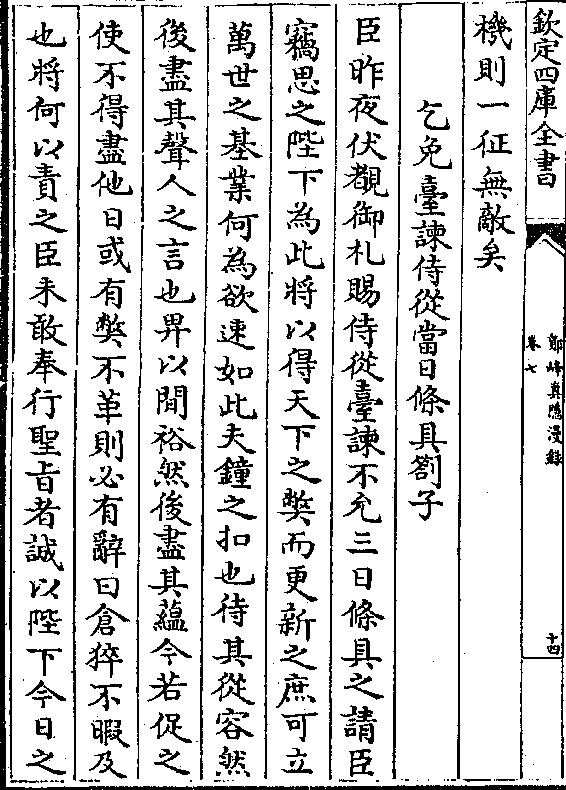 欽定四庫全書
鄮峰真隱漫錄
卷七
十四
機則一征無敵矣
乞免臺諫侍從當日條具劄子
臣昨夜伏覩御札賜侍從臺諫不允三日條具之請臣
竊思之陛下為此將以得天下之獘而更新之庶可立
萬世之基業何為欲速如此夫鐘之扣也待其從容然
後盡其聲人之言也畀以閒裕然後盡其蘊今若促之
使不得盡他日或有獘不革則必有辭曰倉猝不暇及
也將何以責之臣未敢奉行聖旨者誠以陛下今日之